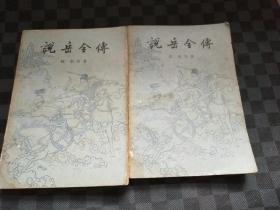 說岳全傳
錢彩等著
說岳全傳
錢彩等著